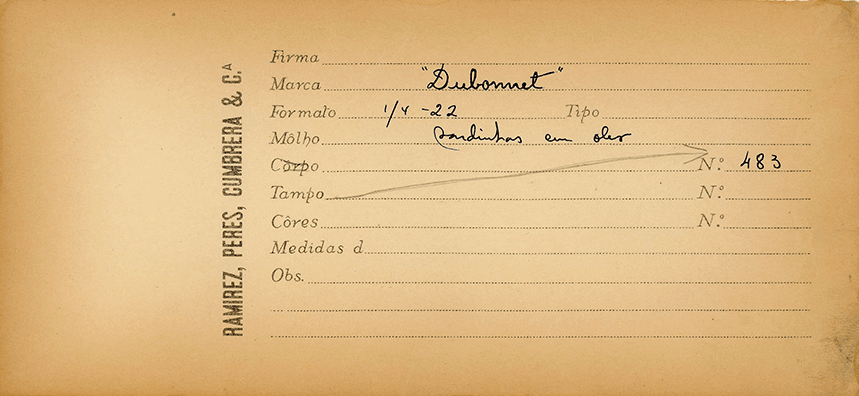 RAMIREZ, PERES, CUMBRERA & C.ᴬ
Firma
Marca "Dubonnet"
Formato 1/4 -22 Tipo
Môlho sardinhas em oleo
Corpo N.º 483
Tampo N.º
Côres N.º
Medidas d
Obs.